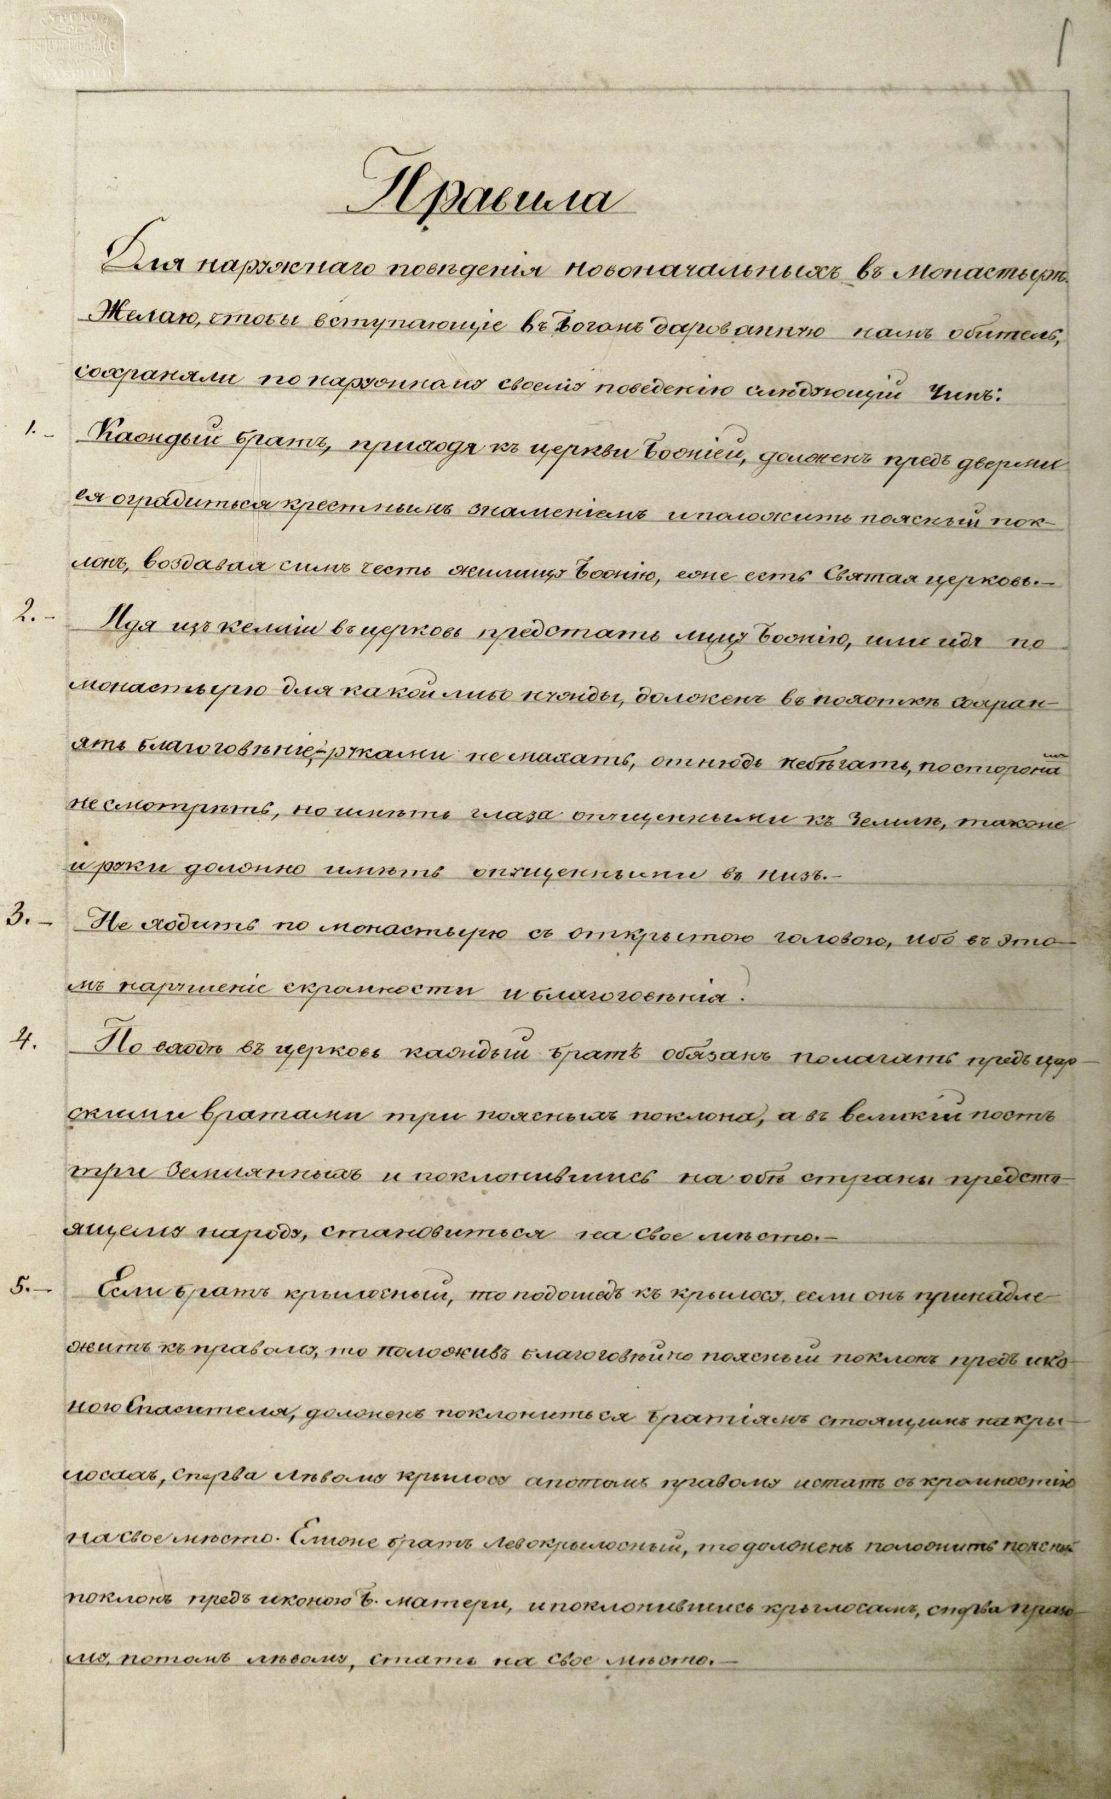 1
Правила
Для наружнаго поведенія новоначальныхъ въ монастырѣ.
Желаю, чтобы вступающіе въ Богомъ дарованную намъ обитель,
сохраняли по наружному своему поведенію слѣдующій чинъ:
1.– Каждый братъ, приходя къ церкви Божіей, долженъ предъ дверми
ея оградиться крестнымъ знаменіемъ и положить поясный пок-
лонъ, воздавая симъ честь жилищу Божію, еже есть Святая церковь.–
2.– Идя изъ келліи въ церковь предстать лицу Божію, или идя по
монастырю для какой либо нужды, должен въ походкѣ сохран-
ять благоговѣніе,– руками не махать, отнюдь небѣгать, по сторонамъ
не смотрѣть, но имѣть глаза опущенными къ земли, также
и руки должно имѣть опущенными въ низъ.–
3.– Не ходить по монастырю съ открытою головою, ибо въ это-
мъ нарушеніе скромности и благоговѣнія.
4. По входѣ въ церковь каждый братъ обязанъ полагать предъ цар-
скими вратами три поясныхъ поклона, а въ великій постъ
три землянныхъ и поклонившись на обѣ страны предсто-
ящему народу, становиться на свое мѣсто.–
5.– Если братъ крылосный, то подошедъ къ крылосу, если онъ принадле-
житъ къ правому, то положивъ благоговѣйно поясный поклонъ предъ ико-
ною Спасителя, долженъ поклониться братіямъ стоящимъ на кры-
лосахъ, сперва лѣвому крылосу а потомъ правому и стать съ кромностію
на свое мѣсто. Если же братъ левокрылосный, то долженъ положить поясный
поклонъ предъ иконою Б. матери, и поклонившись крылосамъ, сперва право-
му, потомъ лѣвому, стать на свое мѣсто.–